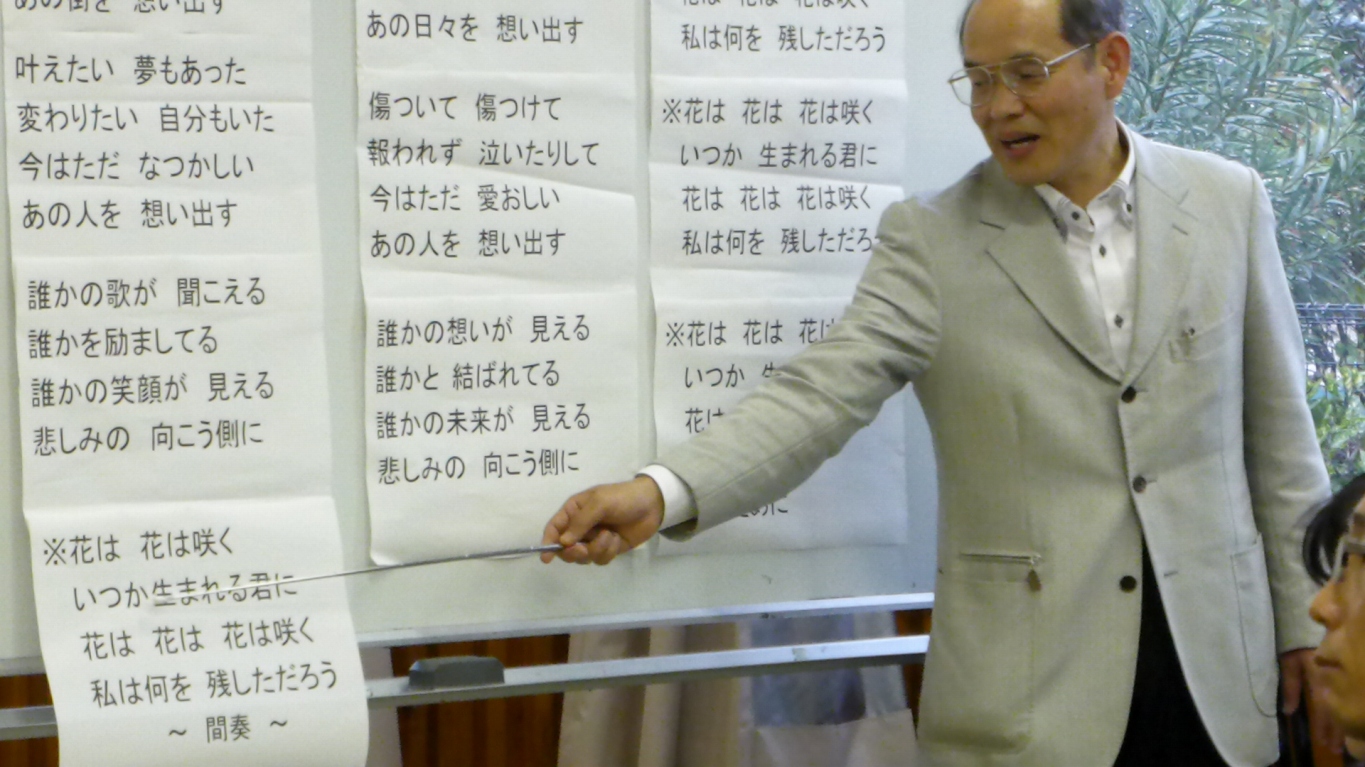 あの街を 想い出す
叶えたい 夢もあった
変わりたい 自分もいた
今はただ なつかしい
あの人を 想い出す
誰かの歌が 聞こえる
誰かを励ましてる
誰かの笑顔が 見える
悲しみの 向こう側に
※花は 花は咲く
いつか生まれる君に
花は 花は 花は咲く
私は何を 残しただろう
～ 間奏 ～
あの日々を 想い出す
傷ついて 傷つけて
報われず 泣いたりして
今はただ 愛おしい
あの人を 想い出す
誰かの想いが 見える
誰かと 結ばれてる
誰かの未来が 見える
悲しみの 向こう側に
花は 花は 花は咲く
私は何を 残しただろう
※花は 花は 花は咲く
いつか 生まれる君に
花は 花は 花は咲く
私は何を 残しただろ
※花は 花は 花
いつか
花は